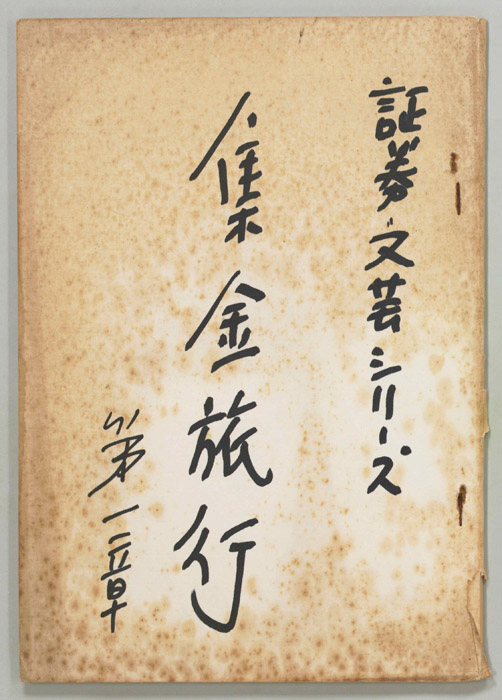 証券文芸シリーズ
集金旅行
第一章